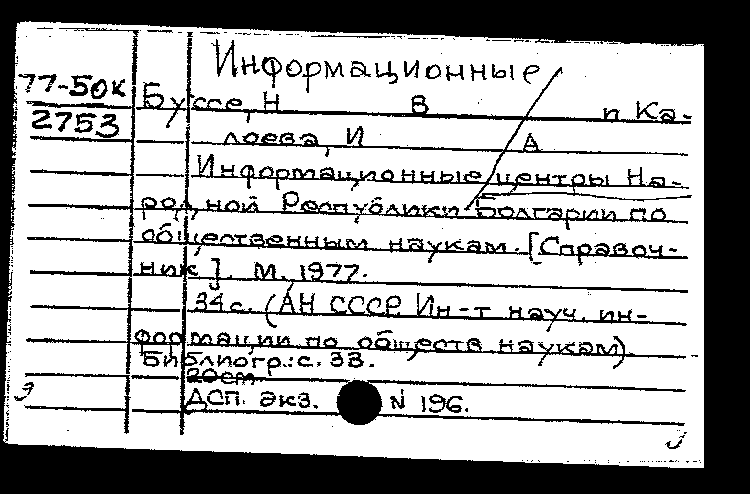 Информационные
77-50к
2753
Буссе, Н В п Ка-
лоева, И А
Информационные центры На-
родной Республики Болгарии по
общественным наукам. [Справоч-
ник]. М., 1977.
34с. (АН СССР Ин-т науч. ин-
формации по обществ. наукам).
Библиогр.: с. 33.
20см
ДСП. экз. N 196.